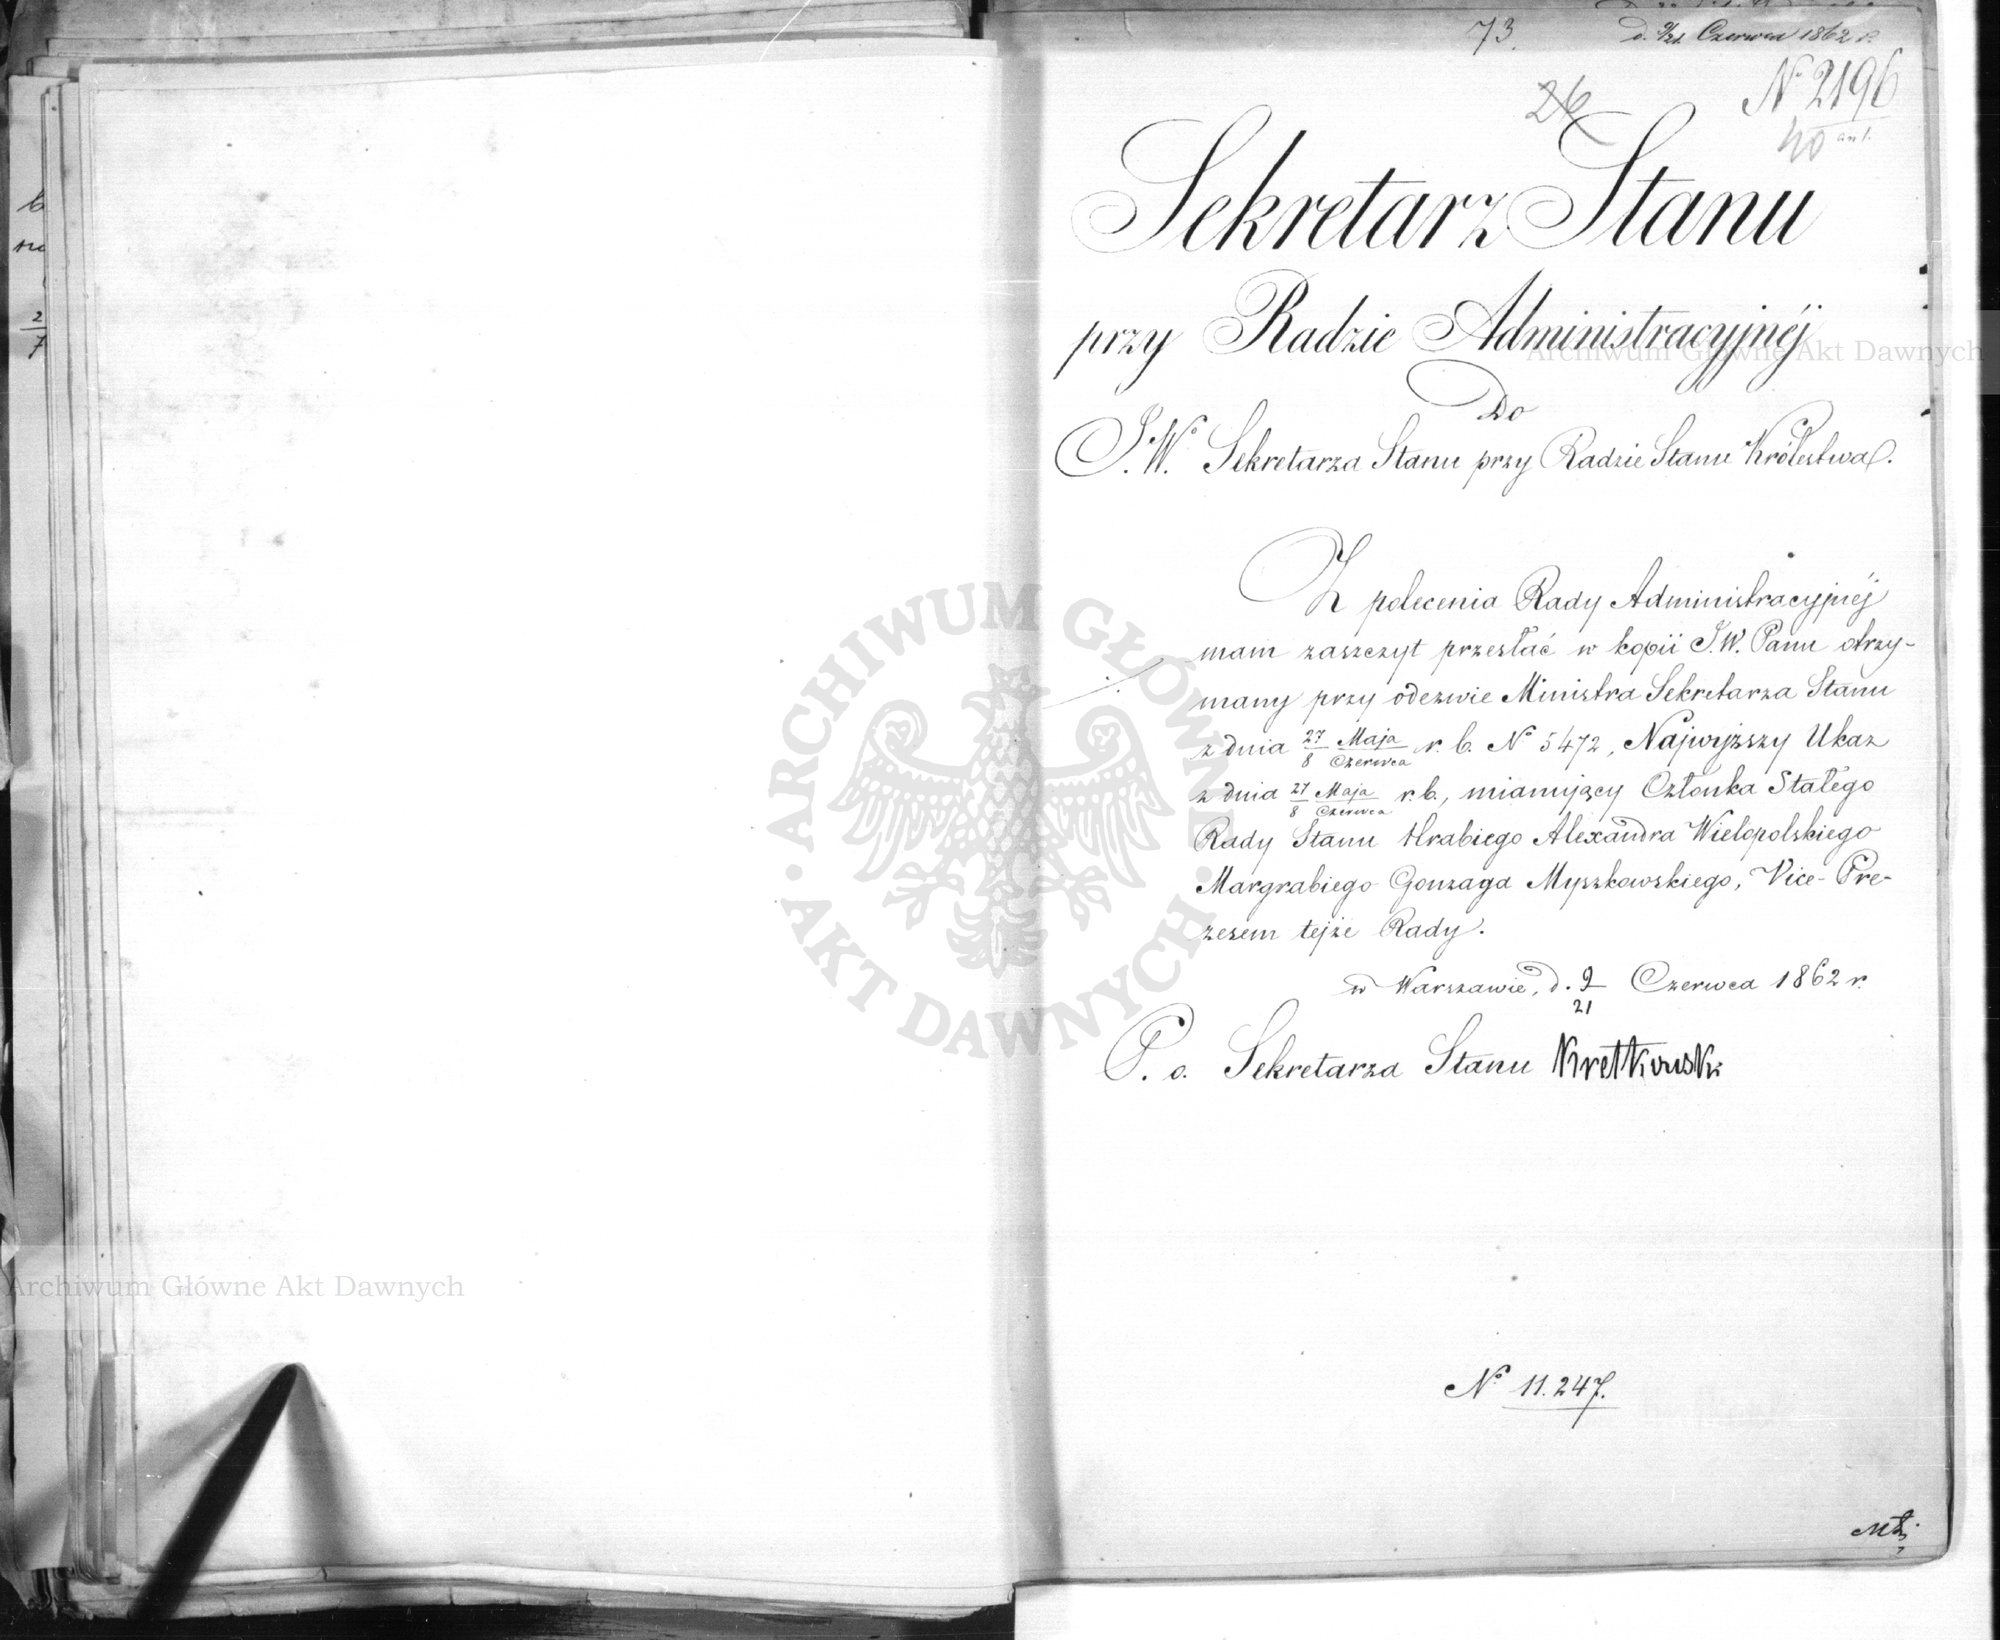 73.
d. 9/21 Czerwca 1862 r.
No 2196
40 ant.
26
Sekretarz Stanu
przy Radzie Administracyjnéj
Do
J.W.o Sekretarza Stanu przy Radzie Stanu Królestwa.
Z polecenia Rady Administracyjnéj
mam zaszczyt przesłać w kopii J.W. Panu otrzy-
many przy odezwie Ministra Sekretarza Stanu
z dnia 27 Maja / 8 Czerwca r. b. No 5472, Najwyższy Ukaz
z dnia 27 Maja / 8 Czerwca r. b., mianujący Członka Stałego
Rady Stanu Hrabiego Alexandra Wielopolskiego
Margrabiego Gonzaga Myszkowskiego, Vice-Pre-
zesem tejże Rady.
w Warszawie, d. 9/21 Czerwca 1862 r.
P. o. Sekretarza Stanu Kretkowski
No 11.247.
ARCHIWUM GŁÓWNE AKT DAWNYCH
Archiwum Główne Akt Dawnych
Archiwum Główne Akt Dawnych